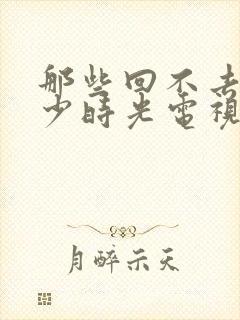 那些回不去
少時光電視
月醉示天